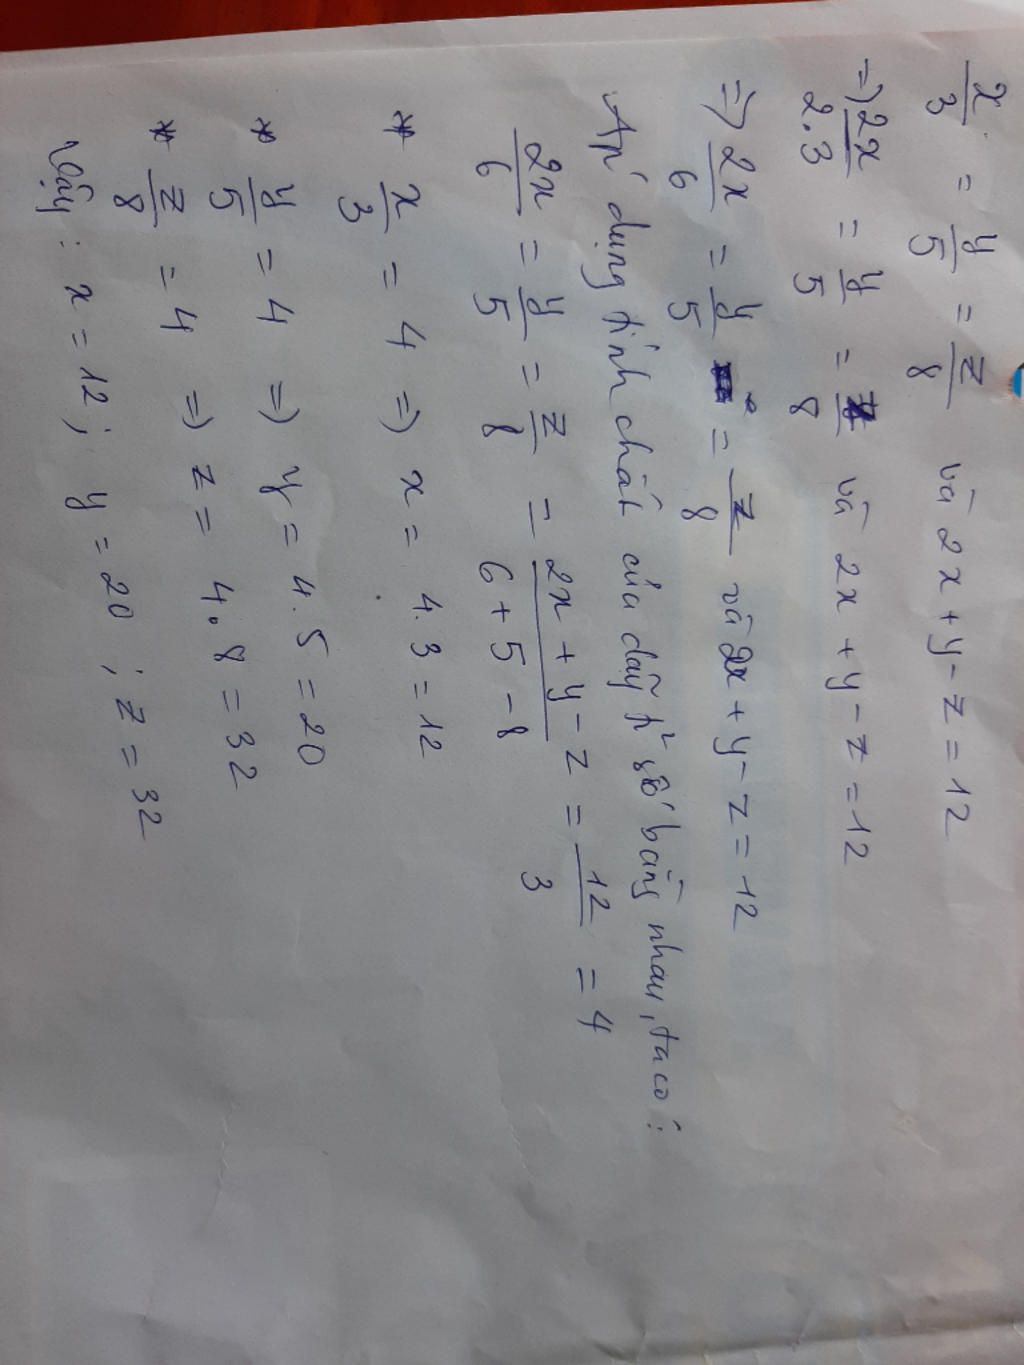 x/3 = y/5 = z/8 và 2x + y - z = 12
=> 2x/2.3 = y/5 = z/8 và 2x + y - z = 12
=> 2x/6 = y/5 = z/8 và 2x + y - z = 12
Áp dụng tính chất của dãy tỉ số bằng nhau, ta có:
2x/6 = y/5 = z/8 = 2x + y - z/6 + 5 - 8 = 12/3 = 4
* x/3 = 4 => x = 4.3 = 12
* y/5 = 4 => y = 4.5 = 20
* z/8 = 4 => z = 4.8 = 32
Vậy: x = 12; y = 20; z = 32